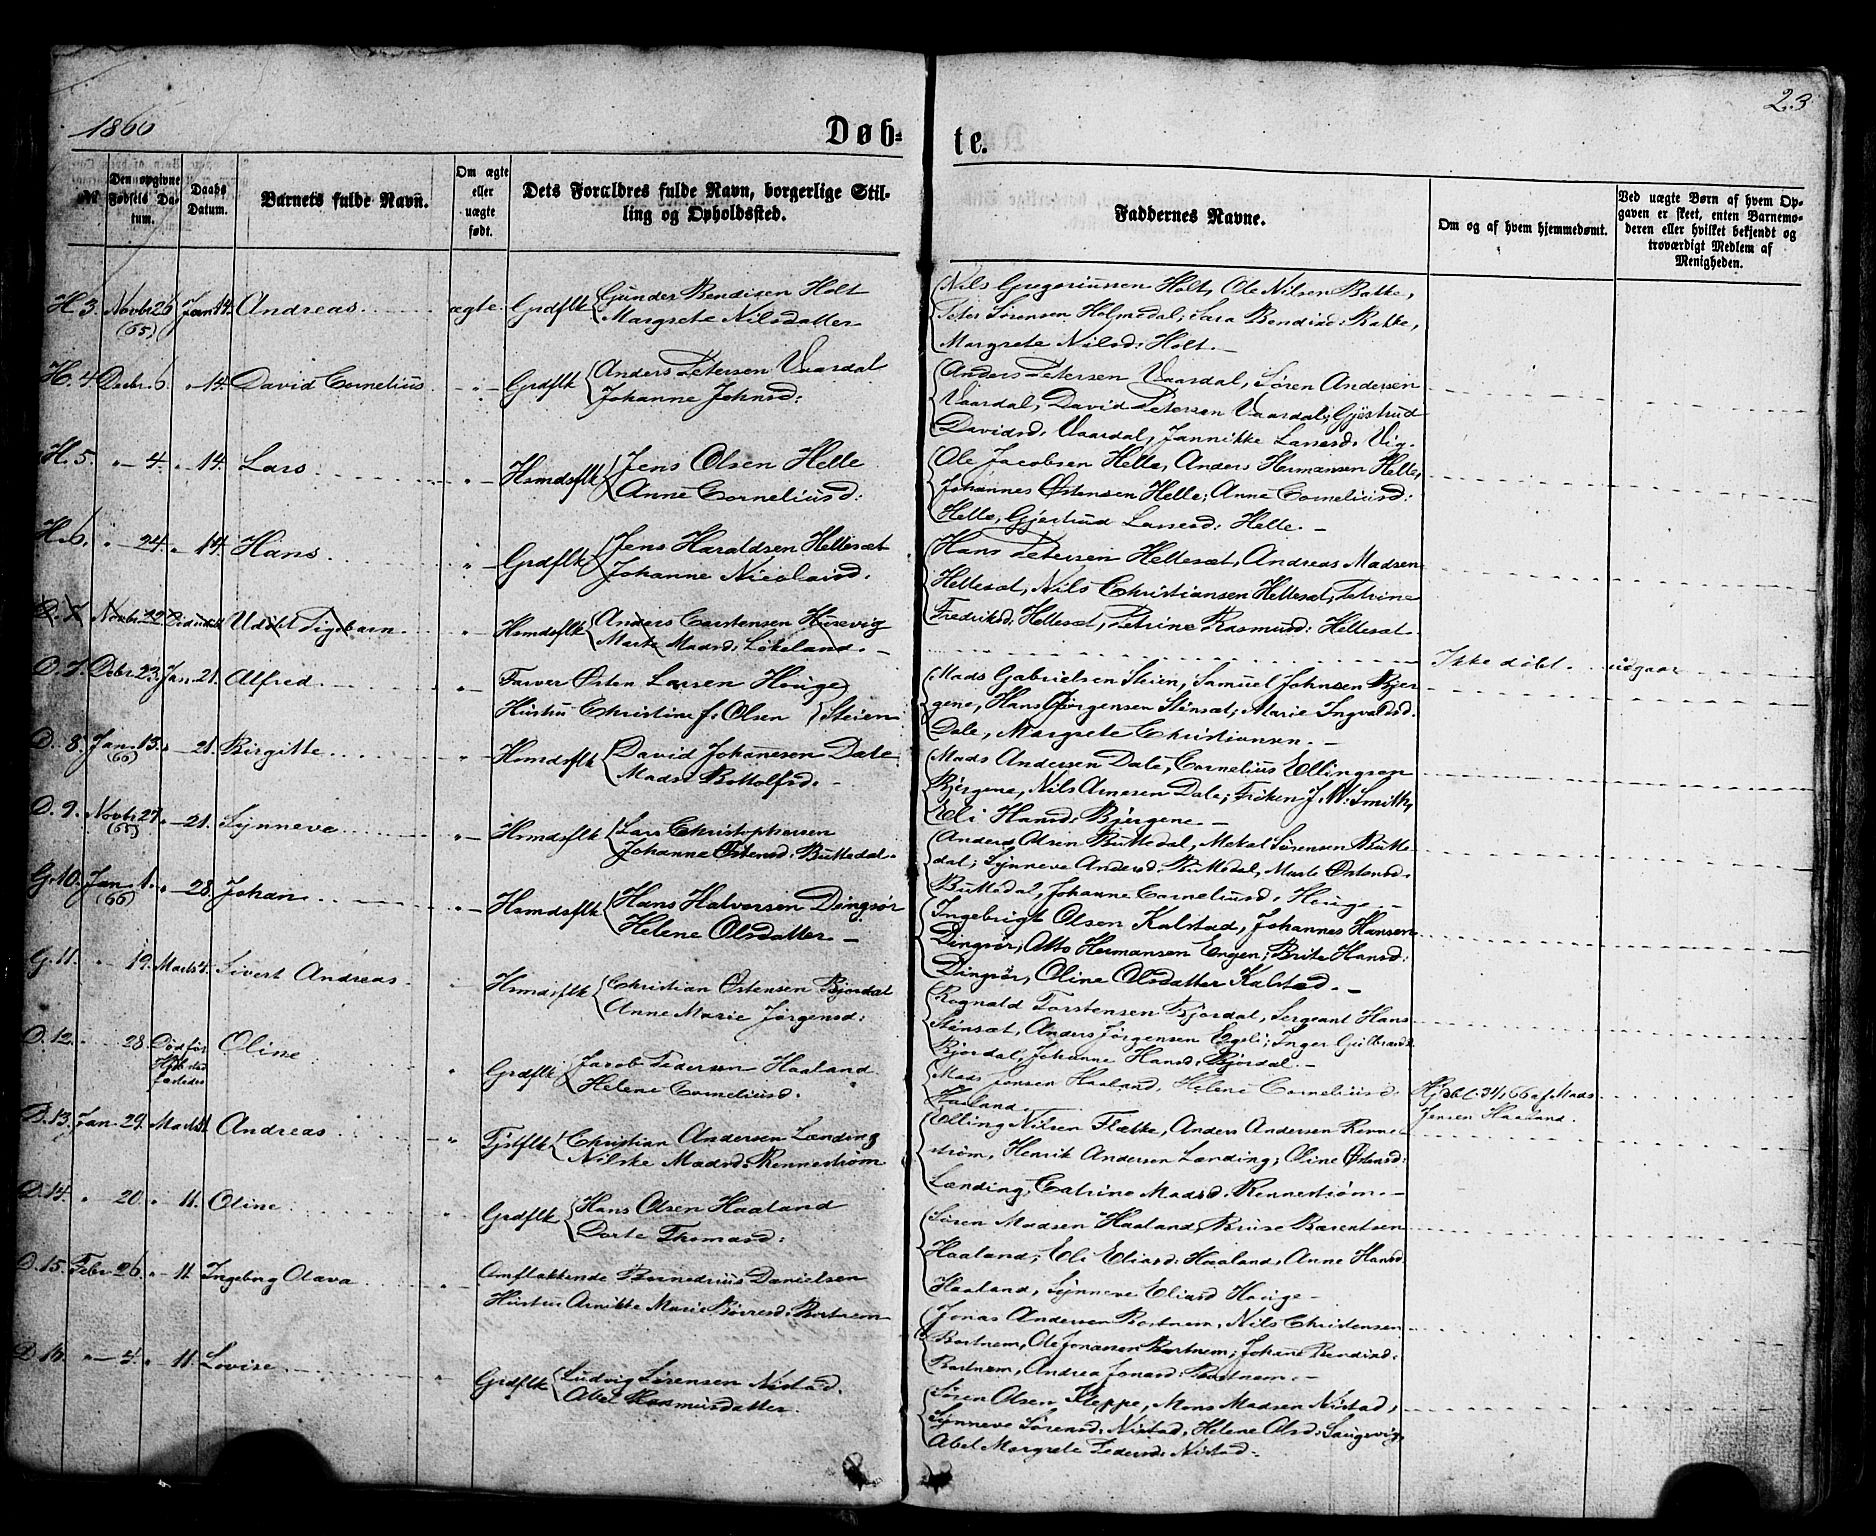 23
1866
Døb-
te.
№
Den opgivne Fødsels Datum.
Daabs Datum.
Barnets fulde Navn.
Om ægte eller uægte født.
Dets Forældres fulde Navn, borgerlige Stilling og Opholdssted.
Faddernes Navne.
Om og af hvem hjemmedøbt.
Ved uægte Børn af hvem Opgaven er skeet, enten Barnemoderen eller hvilket bekjendt og troværdigt Medlem af Menigheden.
H. 3. Novbr 26 (65) Jan 14. Andreas ægte Grdflk Gunder Bendixen Holt
Margrete Nilsdatter
Nils Gregoriussen Holt, Ole Nilsen Bakke,
Peter Sørensen Holmedal; Sara Bendixd: Bakke,
Margrete Nilsd: Holt. –
H. 4 Decbr. 6. " 14. David Cornelius " Grdflk Anders Petersen Vaardal
Johanne Johnsd:
Anders Petersen Vaardal, Søren Andersen
Vaardal, David Petersen Vaardal; Gjertrud
Davidsd. Vaardal, Jannikke Lassesd. Vig.
H. 5. " 4. " 14. Lars " Hsmdsflk Jens Olsen Helle
Anne Corneliusd:
Ole Jacobsen Helle, Anders Hermansen Helle,
Johannes Østensen Helle; Anne Corneliusd:
Helle, Gjertrud Lassesd: Helle. –
H. 6. " 24. " 14. Hans " Grdflk Jens Haraldsen Hellesæt
Johanne Nicolaisd.
Hans Petersen Hellesæt, Andreas Madsen
Hellesæt, Nils Christiansen Hellesæt, Petrine
Fredriksd. Hellesæt, Petrine Rasmusd: Hellesæt.
D. 7. Novbr 22 Udøbt Pigebarn " Hsmdsflk Anders Carstensen Husevig
Marte Madsd: Løkeland. –
Ikke døbt. udgaar
D. 7. Debr. 23. Jan. 21. Alfred " Farver Østen Larsen Houge
Hustru Christine f. Olsen Steien
Mads Gabrielsen Steien, Samuel Johnsen Bjergene,
Hans Jørgensen Stensæt; Marie Ingvaldsd.
Dale, Margrete Christiansen. –
D. 8. Jan. 13. (66) " 21. Birgitte " Hsmdsflk David Johanesen Dale
Madsi Bottolfsd. –
Mads Andersen Dale, Cornelius Ellingsen
Bjergene, Nils Arnesen Dale; Frøken J. W. Smith,
Eli Hansd: Bjergene. –
D. 9. Novbr 27. (65) " 21. Synneve " Hsmdsflk Lars Christophersen
Johanne Østensd: Buttedal.
Anders Olsen Buttedal, Mekal Sørensen Buttedal;
Synneve Andersd. Buttedal, Marte Østensd.
Buttedal, Johanne Corneliusd. Houge. –
G. 10. Jan 1. (66) " 28. Johan " Hsmdsflk Hans Halvorsen Dingsør
Helene Olsdatter –
Ingebrigt Olsen Kalstad, Johannes Hansen
Dingsør, Otto Hermansen Engen; Brite Hansd:
Dingsør, Oline Olsdatter Kalstad. –
G. 11. " 19. Marts 4. Sivert Andreas " Hsmdsflk Christian Østensen Bjordal
Anne Marie Jørgensd:
Rognald Torstensen Bjordal, Sergeant Hans
Stensæt, Anders Jørgensen Egeli; Inger Guilbrandd.
Bjordal, Johanne Hansd. Bjordal. –
D. 12. " 28. Død før Oline " Grdflk Jacob Pedersen Haaland
Helene Corneliusd.
Mads Jensen Haaland, Helene Corneliusd.
Haaland.
Hjdbt. 3/4 66 af Mads
Jensen Haaland.
D. 13. Jan 29. Marts 11. Andreas " Tjstflk Christian Andersen Lænding
Nilske Madsd: Rennestrøm
Elling Nilsen Flække, Anders Andersen Rennestrøm,
Henrik Andersen Lænding; Oline Østensd:
Lænding, Catrine Madsd. Rennestrøm. –
D. 14. " 20. " 11. Oline " Grdflk Hans Olsen Haaland
Dorte Thomasd:
Søren Madsen Haaland, Bruse Barentsen
Haaland; Eli Eliasd: Haaland, Anne Hansd.
Haaland, Synneve Eliasd Houge –
D. 15. Febr. 26. " 11. Ingeborg Olava " Omflakkende Bernedius Danielsen
Hustru Arnikke Marie Børresd: Bortnem
Jonas Andersen Bortnem, Nils Christensen
Bortnem, Ole Jonassen Bortnem; Johane Bendixd:
Bortnem, Andrea Jonasd: Bortnem. –
D. 16. " 4. " 11. Lovise " Grdflk Ludvig Sørensen Nistad.
Abel Rasmusdatter.
Søren Olsen Kleppe, Mons Madsen Nistad,
Synneve Sørensd. Nistad, Helene Olsd: Saugevig,
Abel Margrete Pedersd. Nistad.